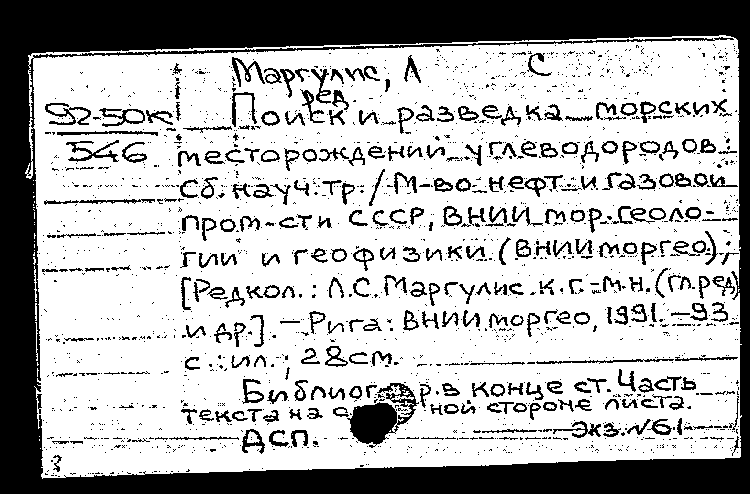 Маргулис, Л С
ред.
92-50к Поиск и разведка морских
546 месторождений углеводородов:
Сб. науч. тр. / М-во нефт. и газовой
пром-сти СССР, ВНИИ мор. геоло-
гии и геофизики (ВНИИморгео);
[Редкол.: Л.С. Маргулис к.г.-м.н. (гл. ред)
и др.]. – Рига: ВНИИморгео, 1991. – 93
с.: ил.; 28см.
Библиогр. в конце ст. Часть
текста на ной стороне листа.
ДСП. Экз. №61